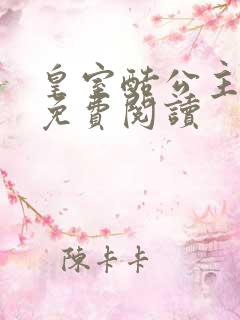 皇室酷公主
免費閱讀
陳卡卡